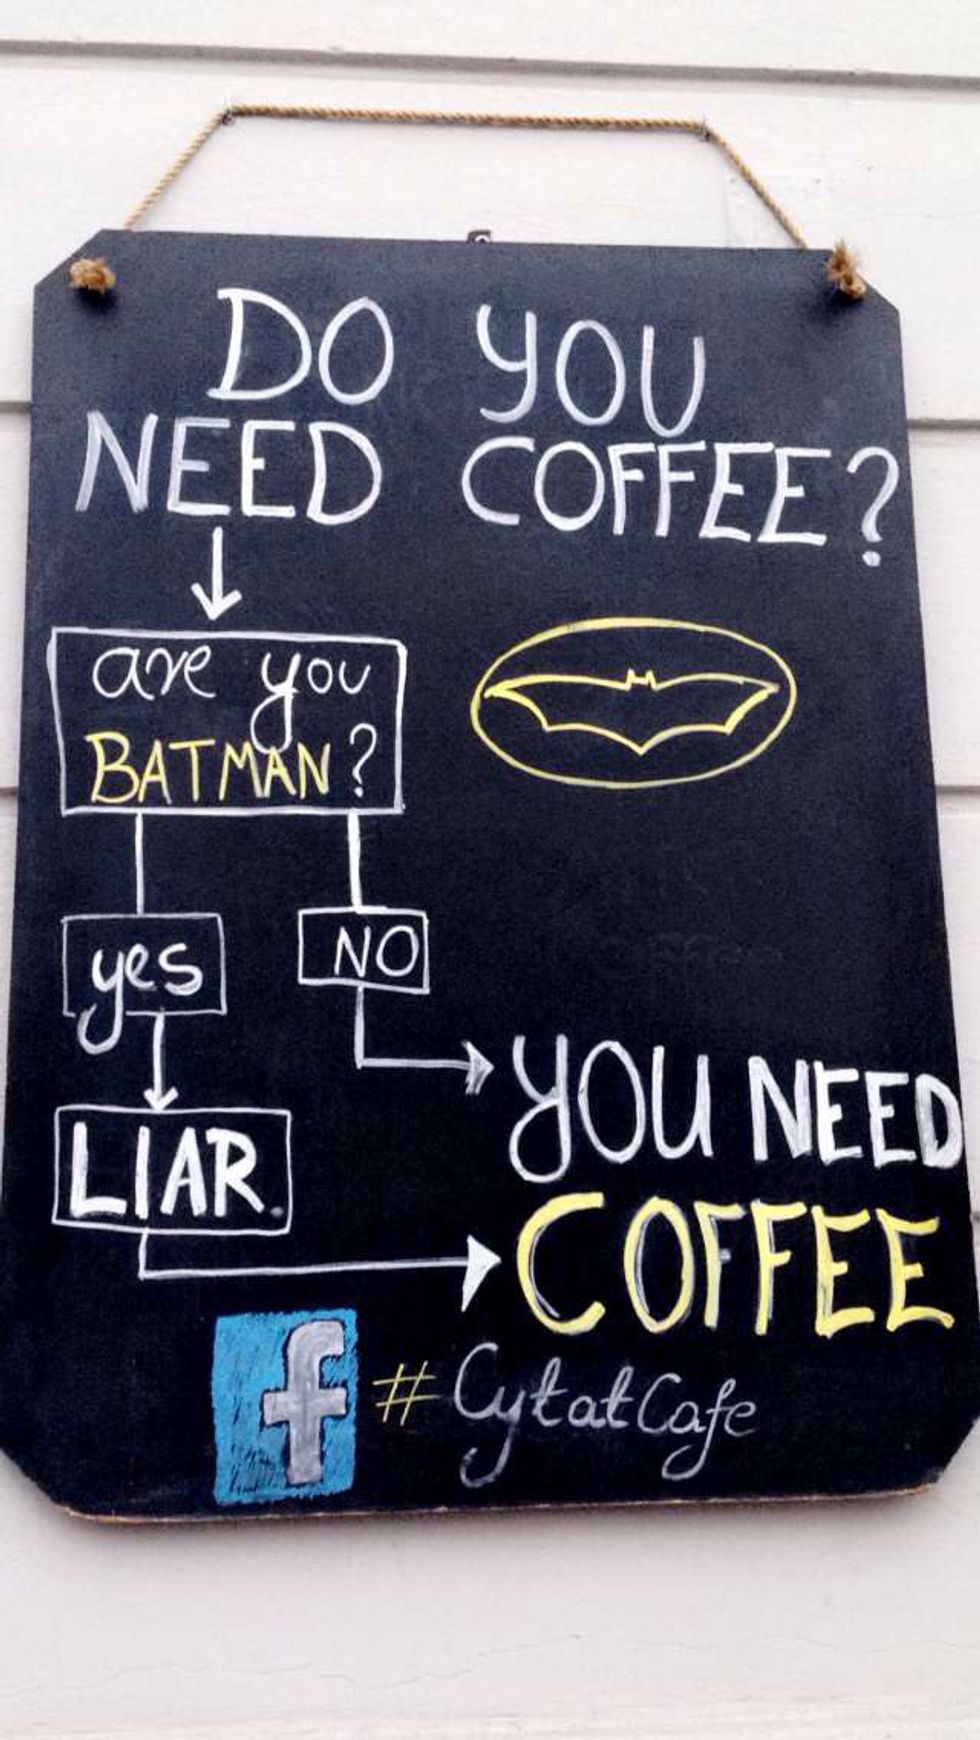 DO YOU
NEED COFFEE?
are you
BATMAN?
yes
NO
LIAR.
YOU NEED
COFFEE
f #CytatCafe